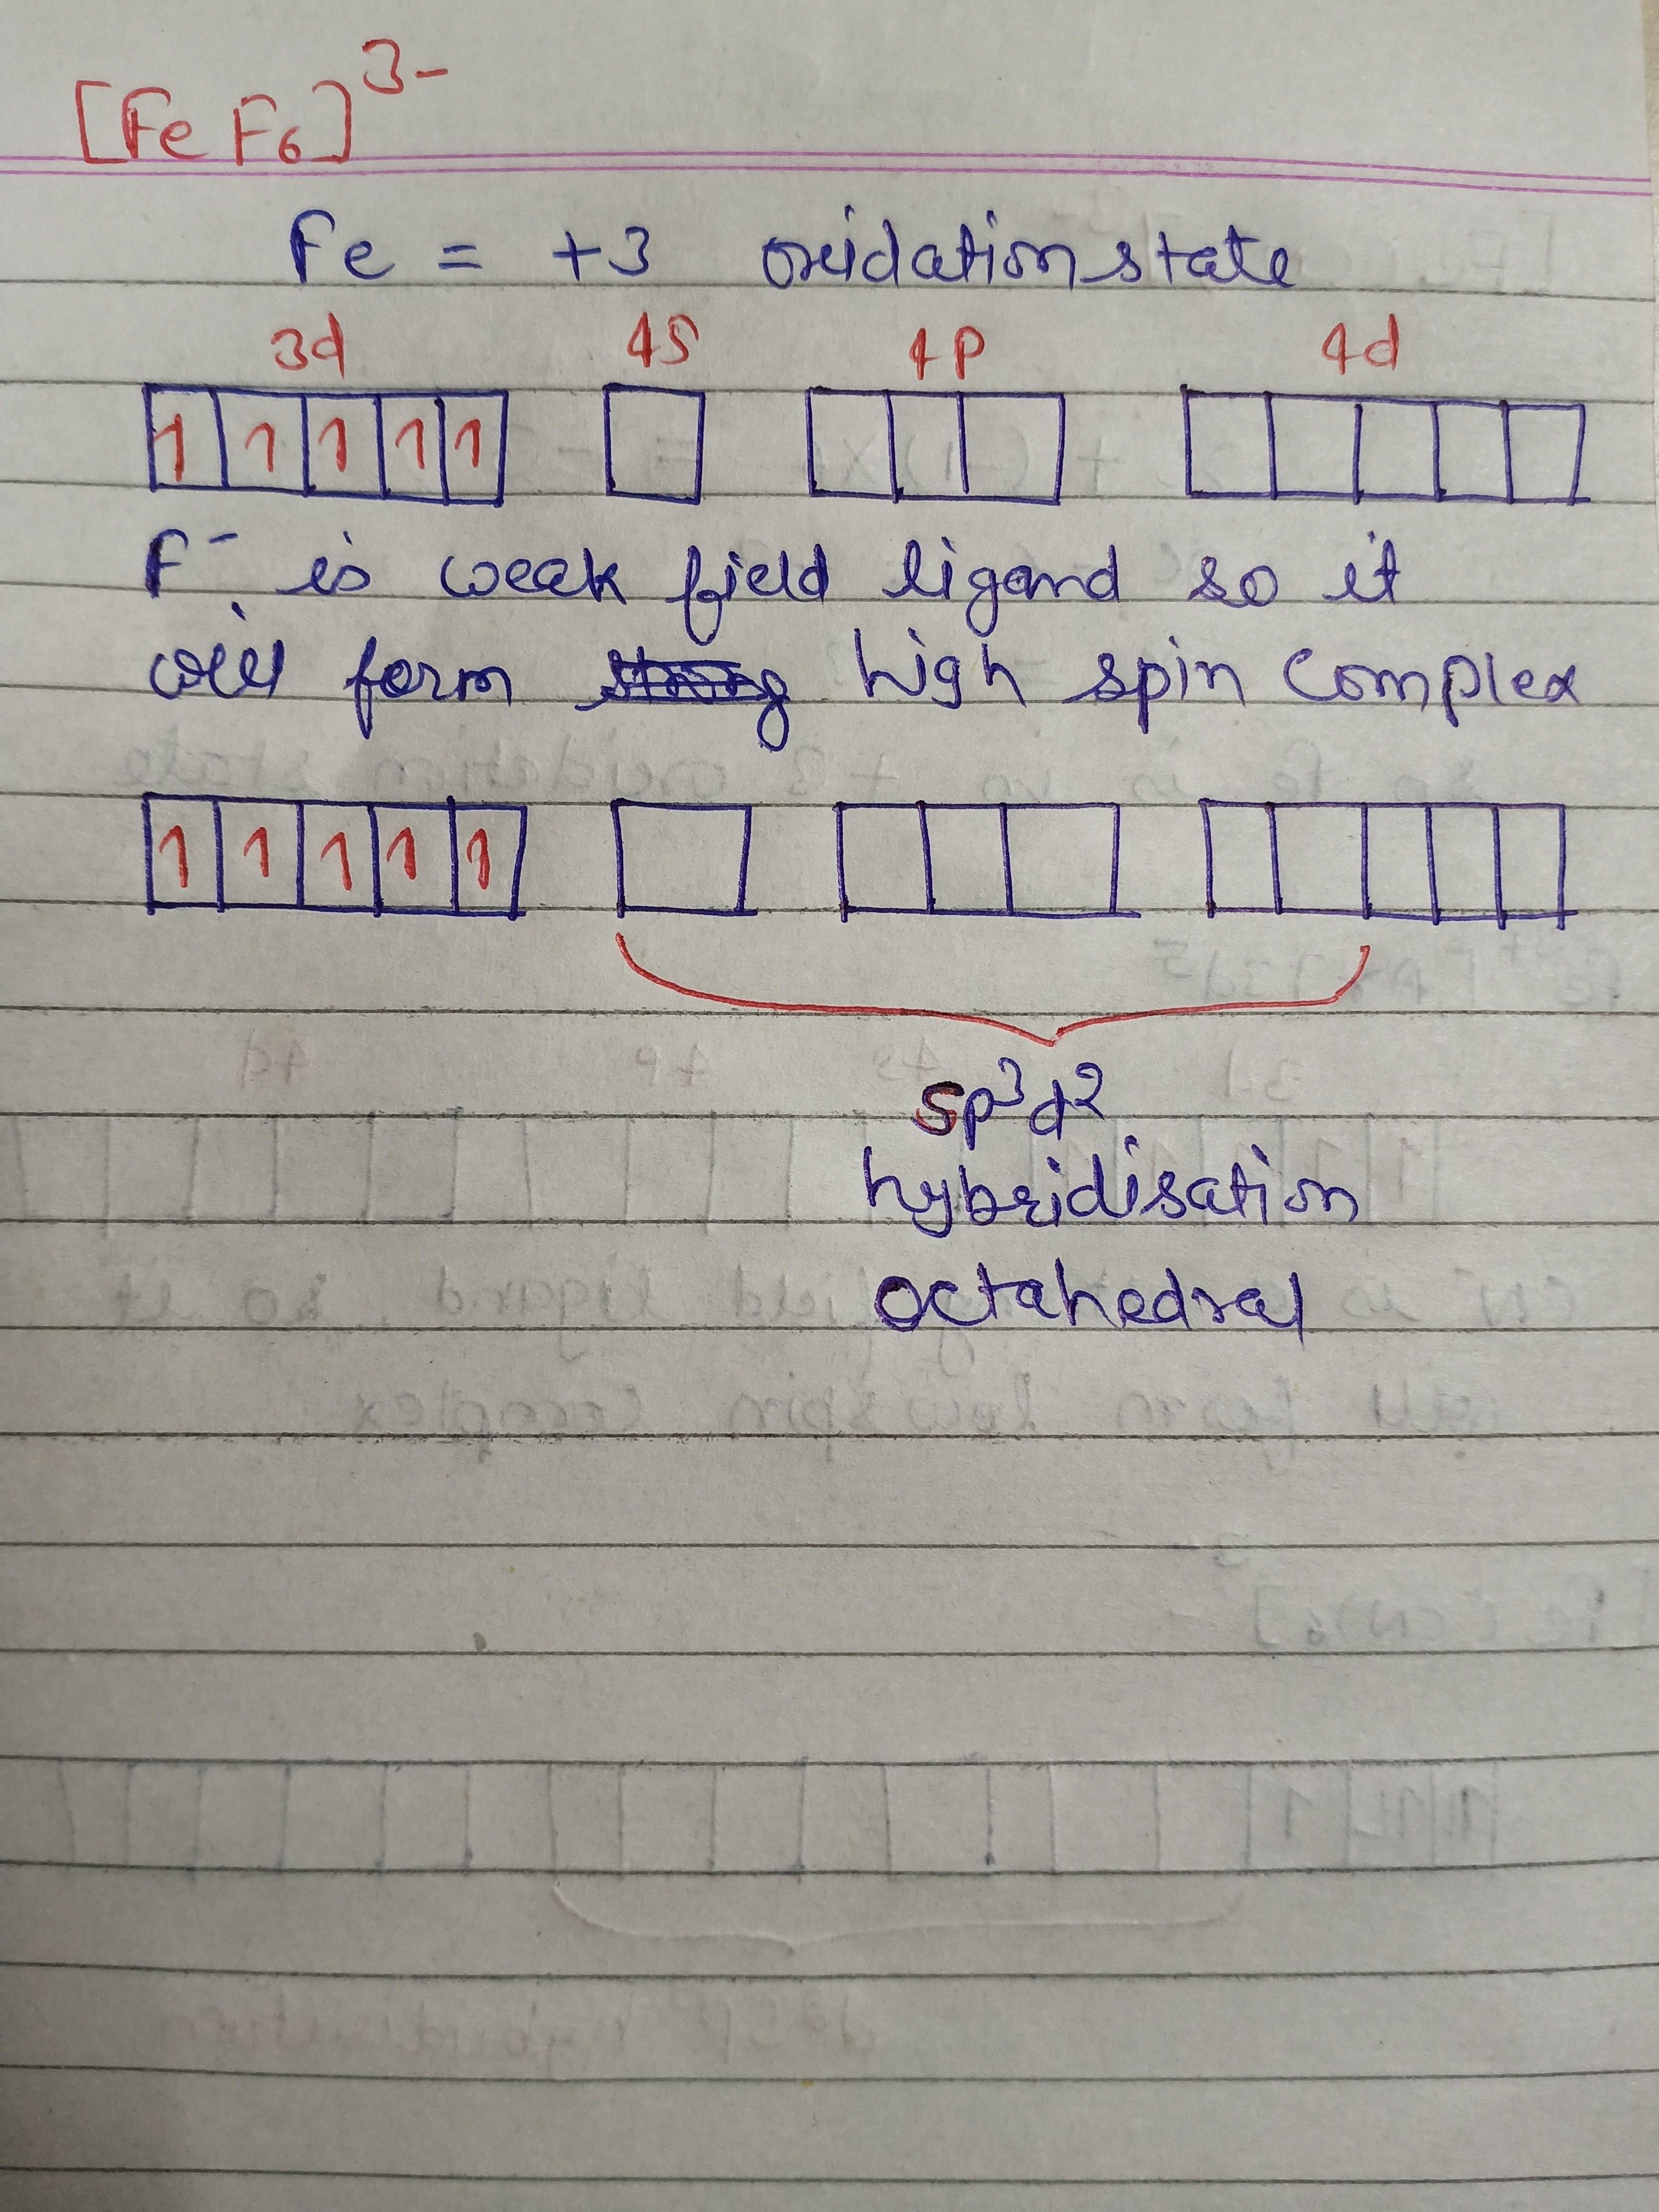 [FeF6]3-
Fe = +3 oxidation state
3d 4s 4p 4d
1 1 1 1 1
F- is weak field ligand so it
will form high spin complex
1 1 1 1 1
sp3d2
hybridisation
octahedral